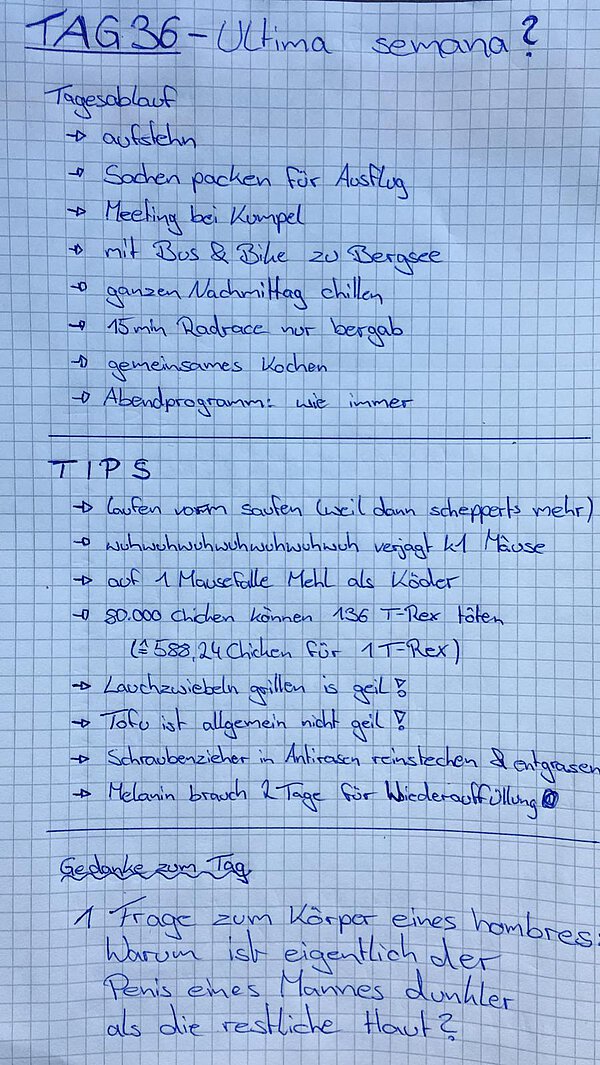 TAG 36 - Ultima semana?
Tagesablauf
→ aufstehn
→ Sachen packen für Ausflug
→ Meeting bei Kumpel
→ mit Bus & Bike zu Bergsee
→ ganzen Nachmittag chillen
→ 15min Radrace nur bergab
→ gemeinsames Kochen
→ Abendprogramm: wie immer
TIPS
→ laufen vorm saufen (weil dann schepperts mehr)
→ wuhwuhwuhwuhwuhwuhwuh verjagt k1 Mäuse
→ auf 1 Mausefalle Mehl als Köder
→ 80.000 Chicken können 136 T-Rex töten
(≙ 588,24 Chicken für 1 T-Rex)
→ Lauchzwiebeln grillen is geil!
→ Tofu ist allgemein nicht geil!
→ Schraubenzieher in Antirasen reinstechen & entgrasen
→ Melanin brauch 2 Tage für Wiederauffüllung
Gedanke zum Tag
1 Frage zum Körper eines hombres:
Warum ist eigentlich der
Penis eines Mannes dunkler
als die restliche Haut?